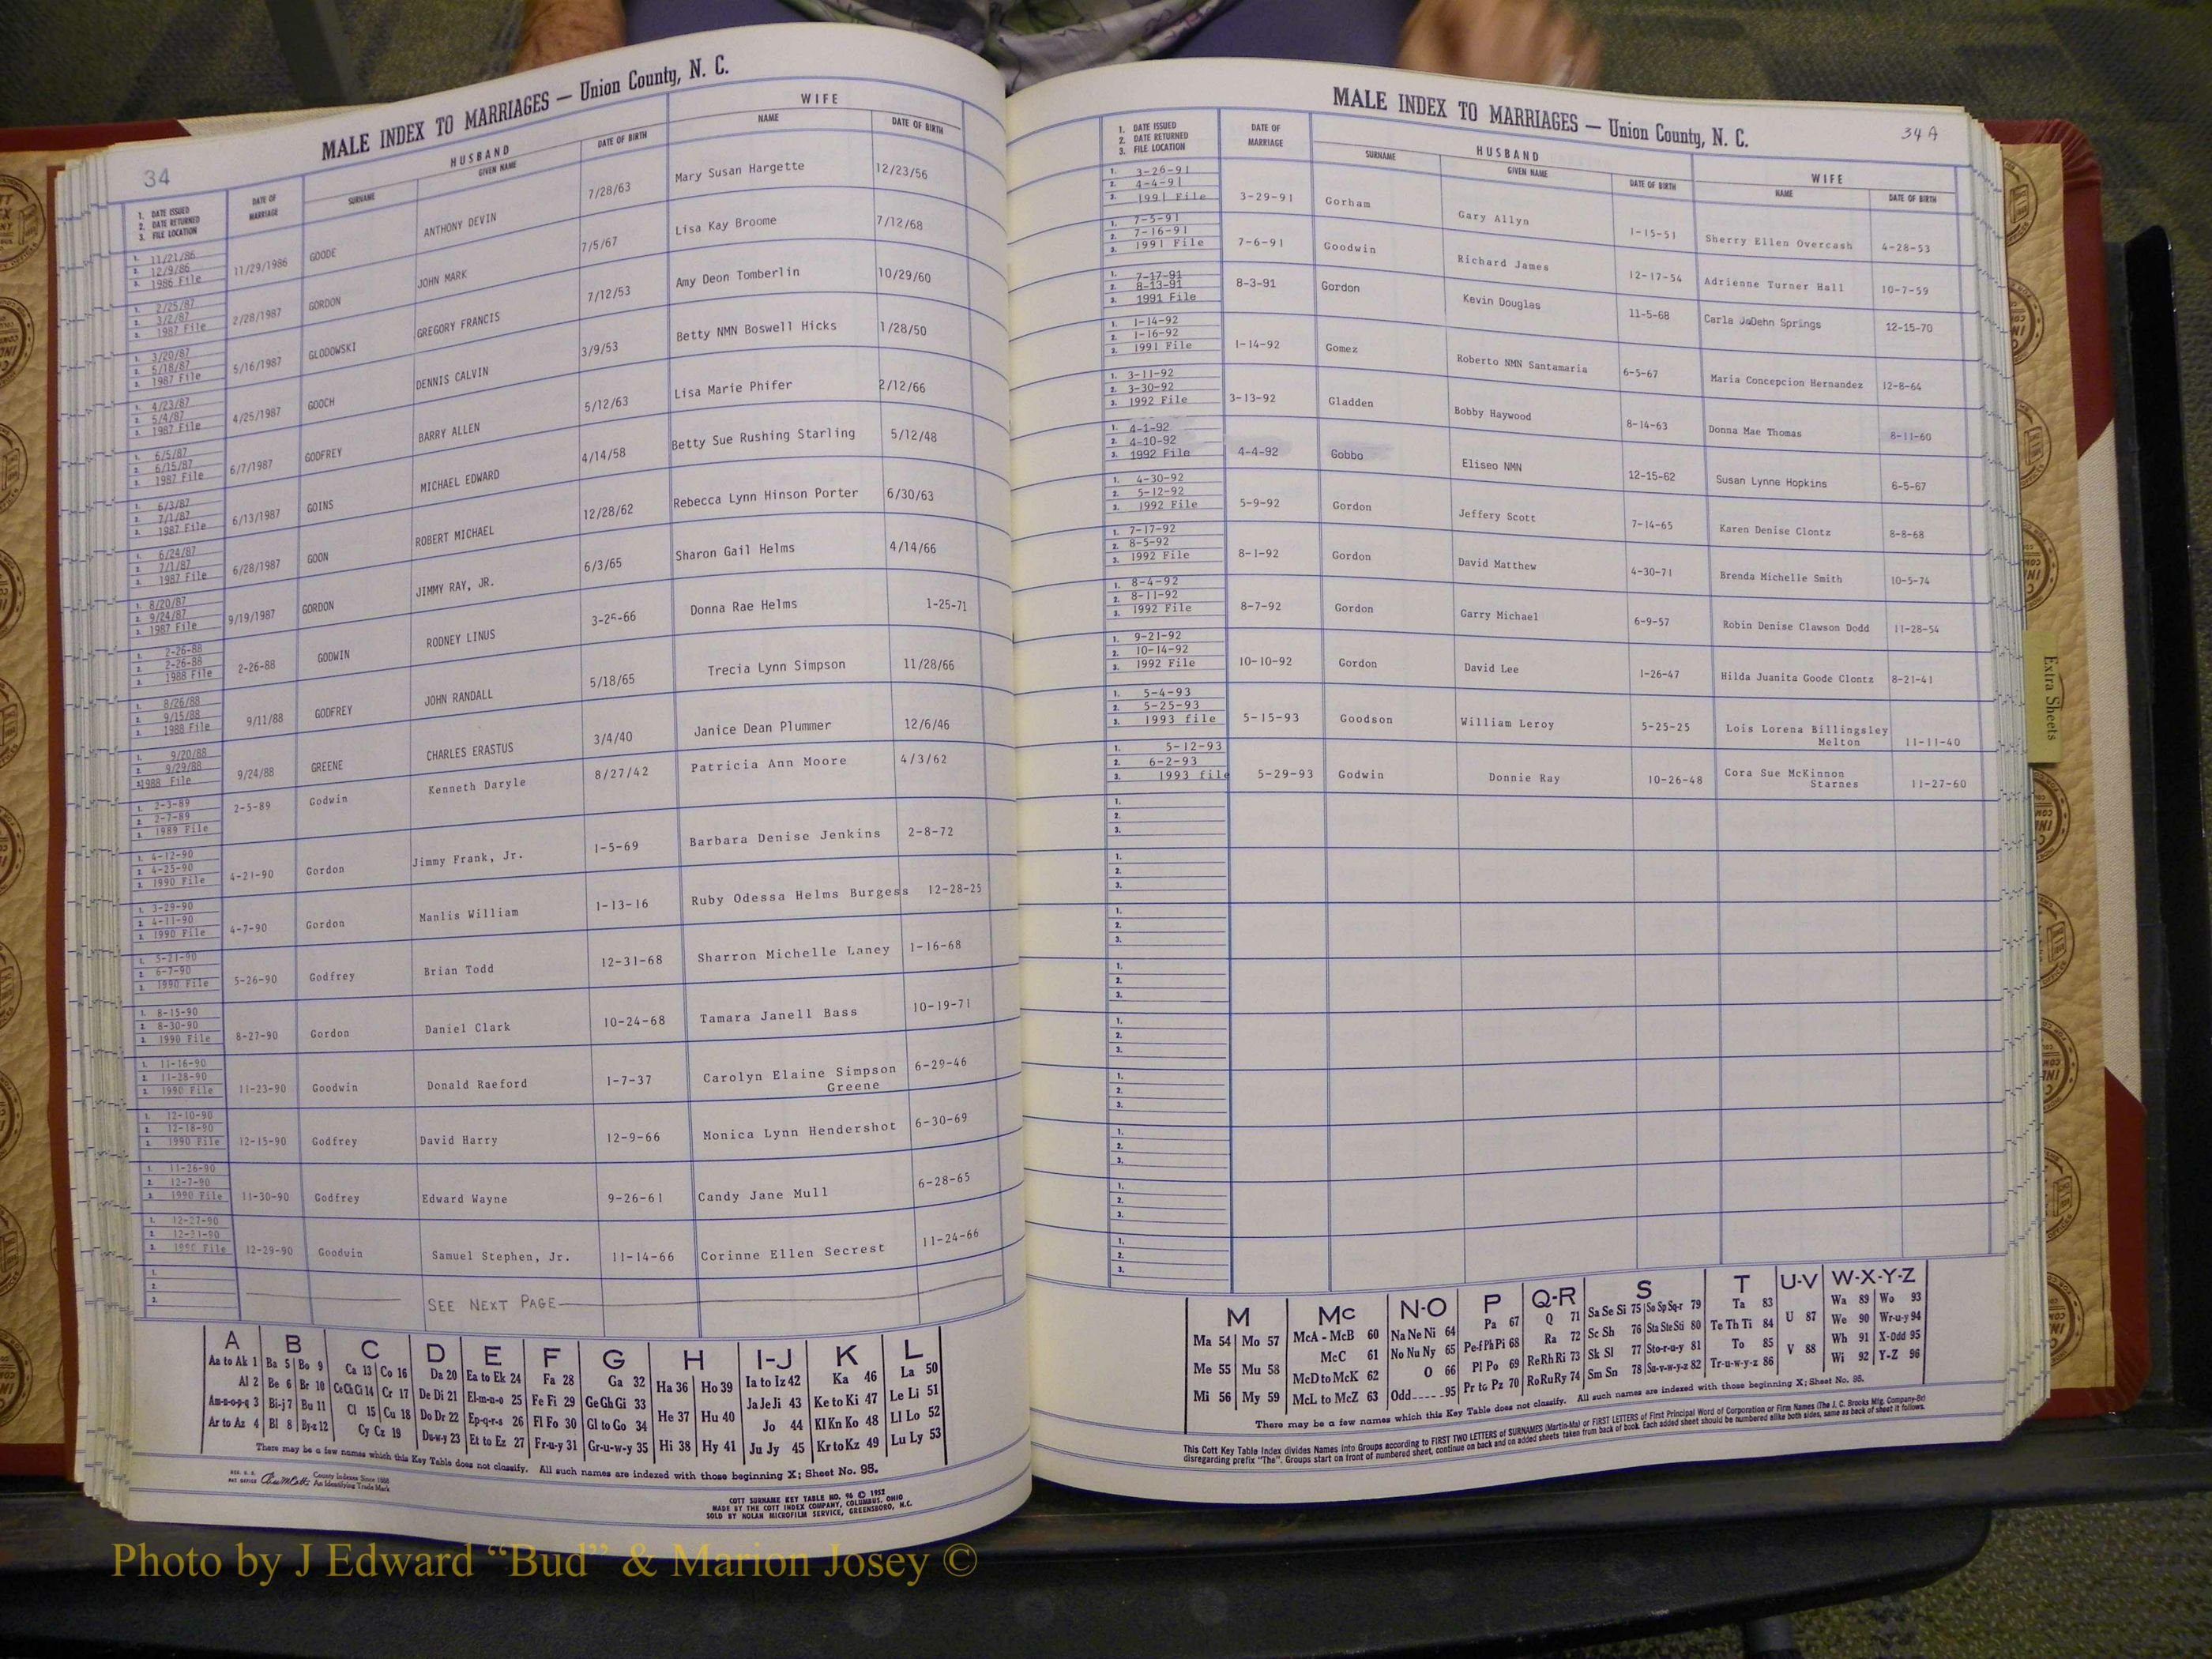 34
MALE INDEX TO MARRIAGES — Union County, N. C.
1. DATE ISSUED
2. DATE RETURNED
3. FILE LOCATION
DATE OF MARRIAGE
HUSBAND
SURNAME GIVEN NAME DATE OF BIRTH
WIFE
NAME DATE OF BIRTH
1. 11/21/86
2. 12/9/86
3. 1986 File
11/29/1986 GOODE ANTHONY DEVIN 7/28/63 Mary Susan Hargette 12/23/56
1. 2/25/87
2. 3/2/87
3. 1987 File
2/28/1987 GORDON JOHN MARK 7/5/67 Lisa Kay Broome 7/12/68
1. 3/20/87
2. 5/18/87
3. 1987 File
5/16/1987 GLODOWSKI GREGORY FRANCIS 7/12/53 Amy Deon Tomberlin 10/29/60
1. 4/23/87
2. 5/4/87
3. 1987 File
4/25/1987 GOOCH DENNIS CALVIN 3/9/53 Betty NMN Boswell Hicks 1/28/50
1. 6/5/87
2. 6/15/87
3. 1987 File
6/7/1987 GODFREY BARRY ALLEN 5/12/63 Lisa Marie Phifer 2/12/66
1. 6/3/87
2. 7/1/87
3. 1987 File
6/13/1987 GOINS MICHAEL EDWARD 4/14/58 Betty Sue Rushing Starling 5/12/48
1. 6/24/87
2. 7/1/87
3. 1987 File
6/28/1987 GOON ROBERT MICHAEL 12/28/62 Rebecca Lynn Hinson Porter 6/30/63
1. 8/20/87
2. 9/24/87
3. 1987 File
9/19/1987 GORDON JIMMY RAY, JR. 6/3/65 Sharon Gail Helms 4/14/66
1. 2-26-88
2. 2-26-88
3. 1988 File
2-26-88 GODWIN RODNEY LINUS 3-25-66 Donna Rae Helms 1-25-71
1. 8/26/88
2. 9/15/88
3. 1988 File
9/11/88 GODFREY JOHN RANDALL 5/18/65 Trecia Lynn Simpson 11/28/66
1. 9/20/88
2. 9/29/88
3. 1988 File
9/24/88 GREENE CHARLES ERASTUS 3/4/40 Janice Dean Plummer 12/6/46
1. 2-3-89
2. 2-7-89
3. 1989 File
2-5-89 Godwin Kenneth Daryle 8/27/42 Patricia Ann Moore 4/3/62
1. 4-12-90
2. 4-25-90
3. 1990 File
4-21-90 Gordon Jimmy Frank, Jr. 1-5-69 Barbara Denise Jenkins 2-8-72
1. 3-29-90
2. 4-11-90
3. 1990 File
4-7-90 Gordon Manlis William 1-13-16 Ruby Odessa Helms Burgess 12-28-25
1. 5-21-90
2. 6-7-90
3. 1990 File
5-26-90 Godfrey Brian Todd 12-31-68 Sharron Michelle Laney 1-16-68
1. 8-15-90
2. 8-30-90
3. 1990 File
8-27-90 Gordon Daniel Clark 10-24-68 Tamara Janell Bass 10-19-71
1. 11-16-90
2. 11-28-90
3. 1990 File
11-23-90 Goodwin Donald Raeford 1-7-37 Carolyn Elaine Simpson Greene 6-29-46
1. 12-10-90
2. 12-18-90
3. 1990 File
12-15-90 Godfrey David Harry 12-9-66 Monica Lynn Hendershot 6-30-69
1. 11-26-90
2. 12-7-90
3. 1990 File
11-30-90 Godfrey Edward Wayne 9-26-61 Candy Jane Mull 6-28-65
1. 12-27-90
2. 12-31-90
3. 1990 File
12-29-90 Goodwin Samuel Stephen, Jr. 11-14-66 Corinne Ellen Secrest 11-24-66
1.
2.
3.
SEE NEXT PAGE
A B C D E F G H I-J K L
Aa to Ak 1 Ba 5 Bo 9 Ca 13 Co 16 Da 20 Ea to Ek 24 Fa 28 Ga 32 Ha 36 Ho 39 Ia to Iz 42 Ka 46 La 50
Al 2 Be 6 Br 10 Ce Ch Ci 14 Cr 17 De Di 21 El-m-n-o 25 Fe Fi 29 Ge Gh Gi 33 He 37 Hu 40 Ja Je Ji 43 Ke to Ki 47 Le Li 51
Am-n-o-p-q 3 Bi-j 7 Bu 11 Cl 15 Cu 18 Do Dr 22 Ep-q-r-s 26 Fl Fo 30 Gl to Go 34 Hi 38 Hy 41 Jo 44 Kl Kn Ko 48 Ll Lo 52
Ar to Az 4 Bl 8 By-z 12 Cy Cz 19 Du-w-y 23 Et to Ez 27 Fr-u-y 31 Gr-u-w-y 35 Ju Jy 45 Kr to Kz 49 Lu Ly 53
There may be a few names which this Key Table does not classify. All such names are indexed with those beginning X; Sheet No. 95.
County Indexes Since 1888
An Identifying Trade Mark
COTT SURNAME KEY TABLE NO. 96 © 1952
MADE BY THE COTT INDEX COMPANY, COLUMBUS, OHIO
SOLD BY NOLAN MICROFILM SERVICE, GREENSBORO, N.C.
MALE INDEX TO MARRIAGES — Union County, N. C.
34 A
1. DATE ISSUED
2. DATE RETURNED
3. FILE LOCATION
DATE OF MARRIAGE
HUSBAND
SURNAME GIVEN NAME DATE OF BIRTH
WIFE
NAME DATE OF BIRTH
1. 3-26-91
2. 4-4-91
3. 1991 File
3-29-91 Gorham Gary Allyn 1-15-51 Sherry Ellen Overcash 4-28-53
1. 7-5-91
2. 7-16-91
3. 1991 File
7-6-91 Goodwin Richard James 12-17-54 Adrienne Turner Hall 10-7-59
1. 7-17-91
2. 8-13-91
3. 1991 File
8-3-91 Gordon Kevin Douglas 11-5-68 Carla JaDehn Springs 12-15-70
1. 1-14-92
2. 1-16-92
3. 1991 File
1-14-92 Gomez Roberto NMN Santamaria 6-5-67 Maria Concepcion Hernandez 12-8-64
1. 3-11-92
2. 3-30-92
3. 1992 File
3-13-92 Gladden Bobby Haywood 8-14-63 Donna Mae Thomas 8-11-60
1. 4-1-92
2. 4-10-92
3. 1992 File
4-4-92 Gobbo Eliseo NMN 12-15-62 Susan Lynne Hopkins 6-5-67
1. 4-30-92
2. 5-12-92
3. 1992 File
5-9-92 Gordon Jeffery Scott 7-14-65 Karen Denise Clontz 8-8-68
1. 7-17-92
2. 8-5-92
3. 1992 File
8-1-92 Gordon David Matthew 4-30-71 Brenda Michelle Smith 10-5-74
1. 8-4-92
2. 8-11-92
3. 1992 File
8-7-92 Gordon Garry Michael 6-9-57 Robin Denise Clawson Dodd 11-28-54
1. 9-21-92
2. 10-14-92
3. 1992 File
10-10-92 Gordon David Lee 1-26-47 Hilda Juanita Goode Clontz 8-21-41
1. 5-4-93
2. 5-25-93
3. 1993 file
5-15-93 Goodson William Leroy 5-25-25 Lois Lorena Billingsley Melton 11-11-40
1. 5-12-93
2. 6-2-93
3. 1993 file
5-29-93 Godwin Donnie Ray 10-26-48 Cora Sue McKinnon Starnes 11-27-60
1.
2.
3.
1.
2.
3.
1.
2.
3.
1.
2.
3.
1.
2.
3.
1.
2.
3.
1.
2.
3.
1.
2.
3.
1.
2.
3.
Extra Sheets
M Mc N-O P Q-R S T U-V W-X-Y-Z
Ma 54 Mo 57 McA - McB 60 Na Ne Ni 64 Pa 67 Q 71 Sa Se Si 75 So Sp Sq-r 79 Ta 83 U 87 Wa 89 Wo 93
Me 55 Mu 58 McC 61 No Nu Ny 65 Pe-f Ph Pi 68 Ra 72 Sc Sh 76 Sta Ste Sti 80 Te Th Ti 84 V 88 We 90 Wr-u-y 94
Mi 56 My 59 McD to McK 62 O 66 Pl Po 69 Re Rh Ri 73 Sk Sl 77 Sto-r-u-y 81 To 85 Wh 91 X-Odd 95
McL to McZ 63 Odd 95 Pr to Pz 70 Ro Ru Ry 74 Sm Sn 78 Su-v-w-y-z 82 Tr-u-w-y-z 86 Wi 92 Y-Z 96
There may be a few names which this Key Table does not classify. All such names are indexed with those beginning X; Sheet No. 95.
This Cott Key Table Index divides Names into Groups according to FIRST TWO LETTERS of SURNAMES (Martin-Ma) or FIRST LETTERS of First Principal Word of Corporation or Firm Names (The J. C. Brooks Mfg. Company-Br)
disregarding prefix "The". Groups start on front of numbered sheet, continue on back and on added sheets taken from back of book. Each added sheet should be numbered alike both sides, same as back of sheet it follows.
Photo by J Edward “Bud” & Marion Josey ©